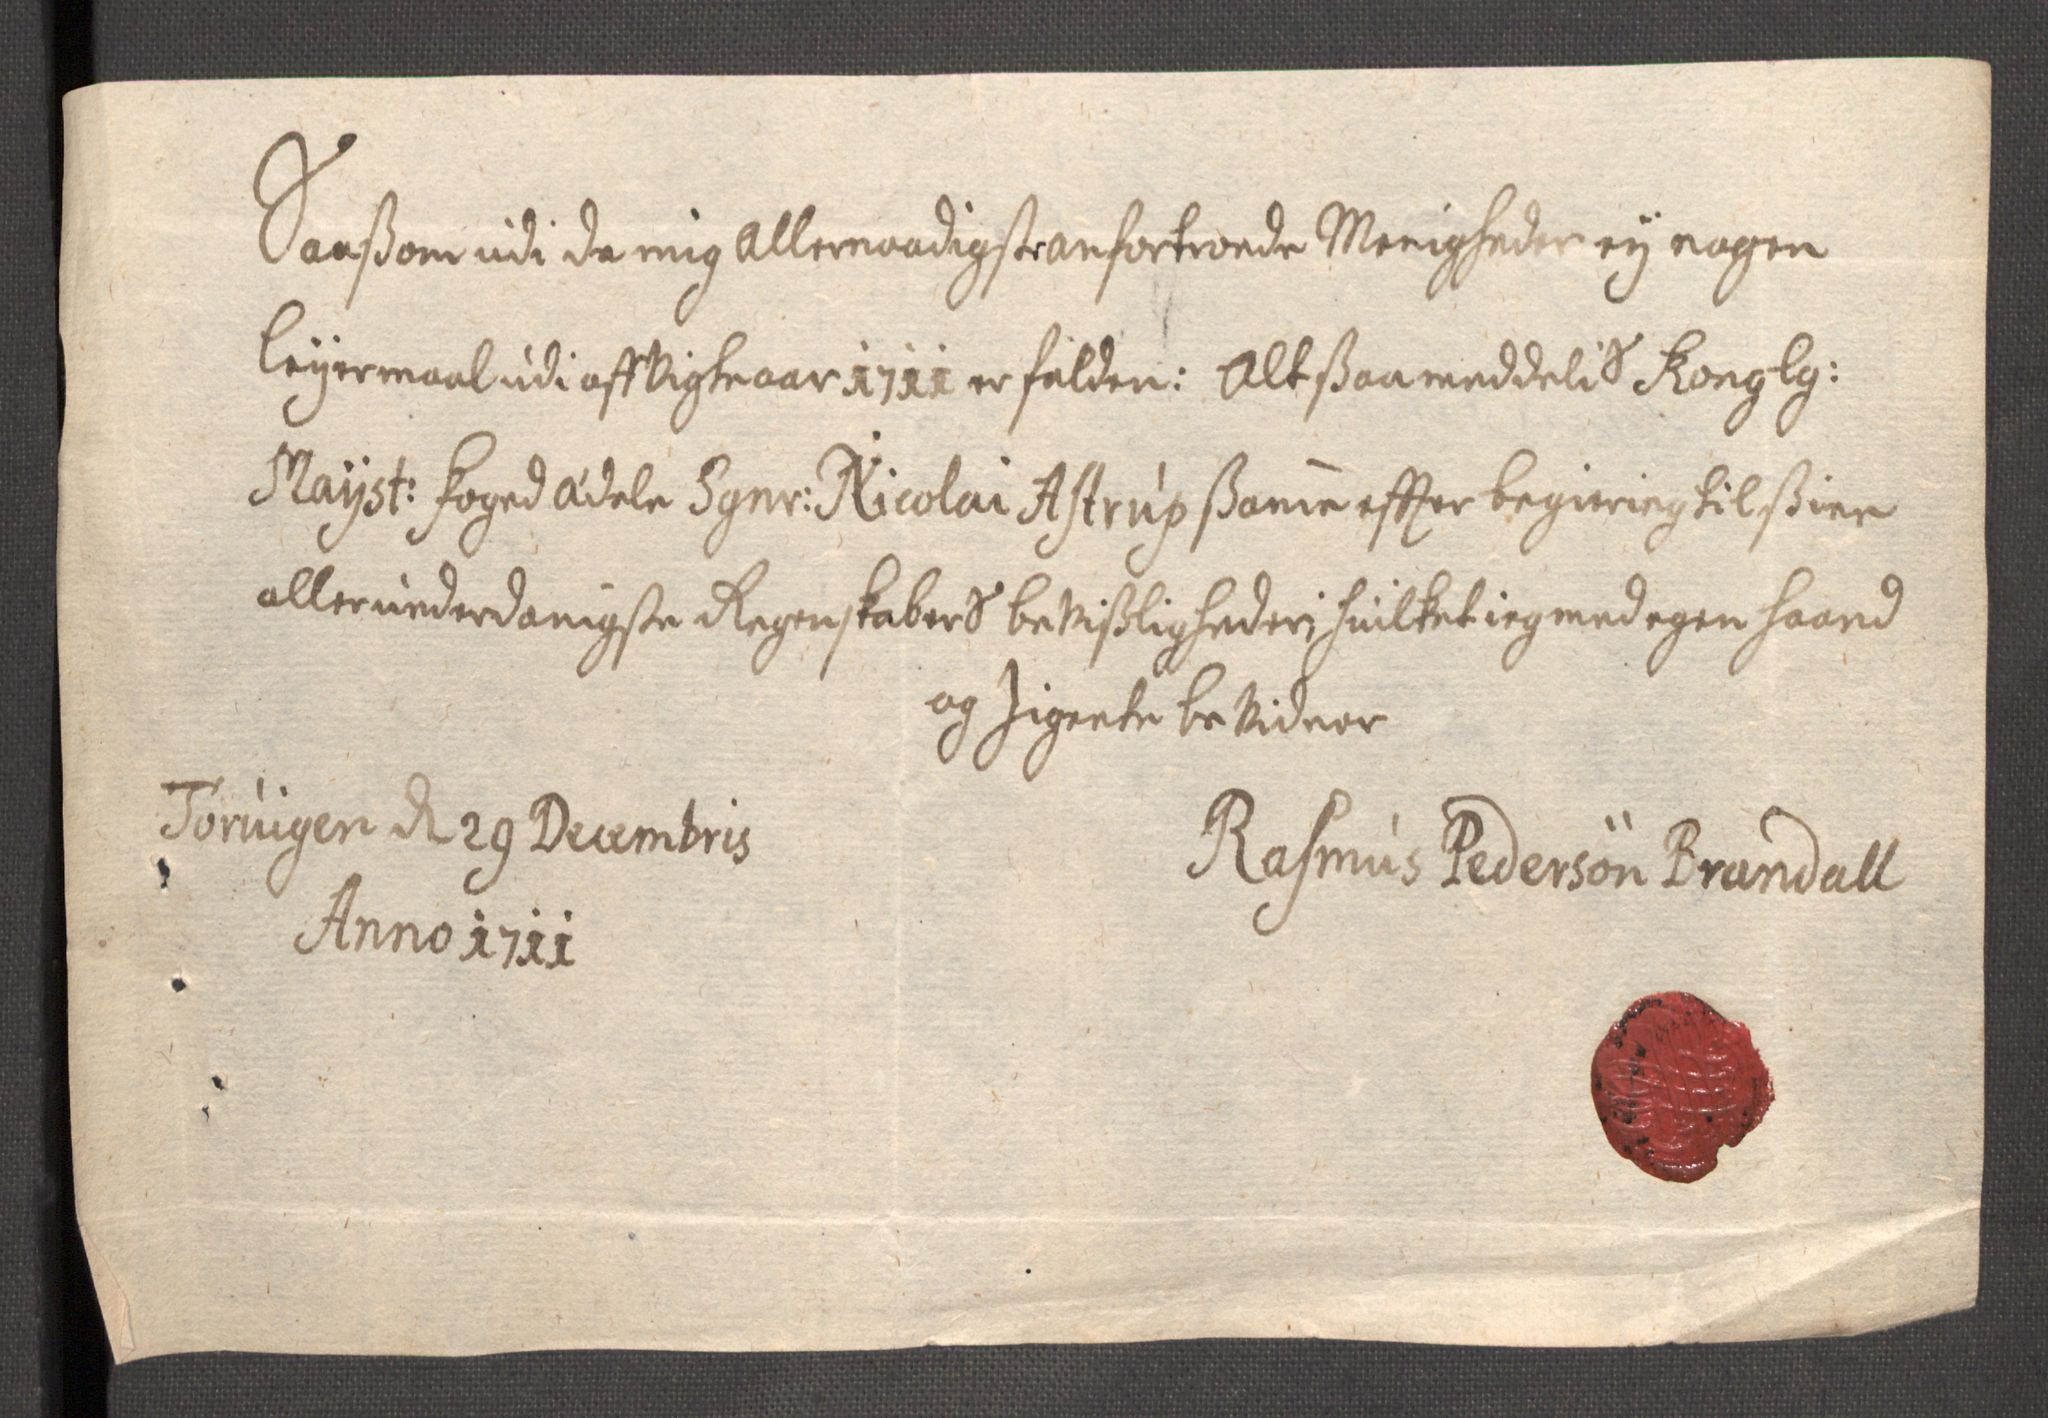 Saaßom udi de mig Allernaadigst anfortroede Menigheder ey nogen
leyermaal udi affvigte aar 1711 er falden: Alt ßaa meddelis Konglg:
Mayst: foged Adele Sgnr: Nicolai Astrup ßame effter begiering til ßine
allerunderdanigste Regenskabers bevißligheder, huilket ieg med egen haand
og Zignete bevidner
Toruigen d 29 Decembris
Anno 1711
Rasmus Pedersön Brandall